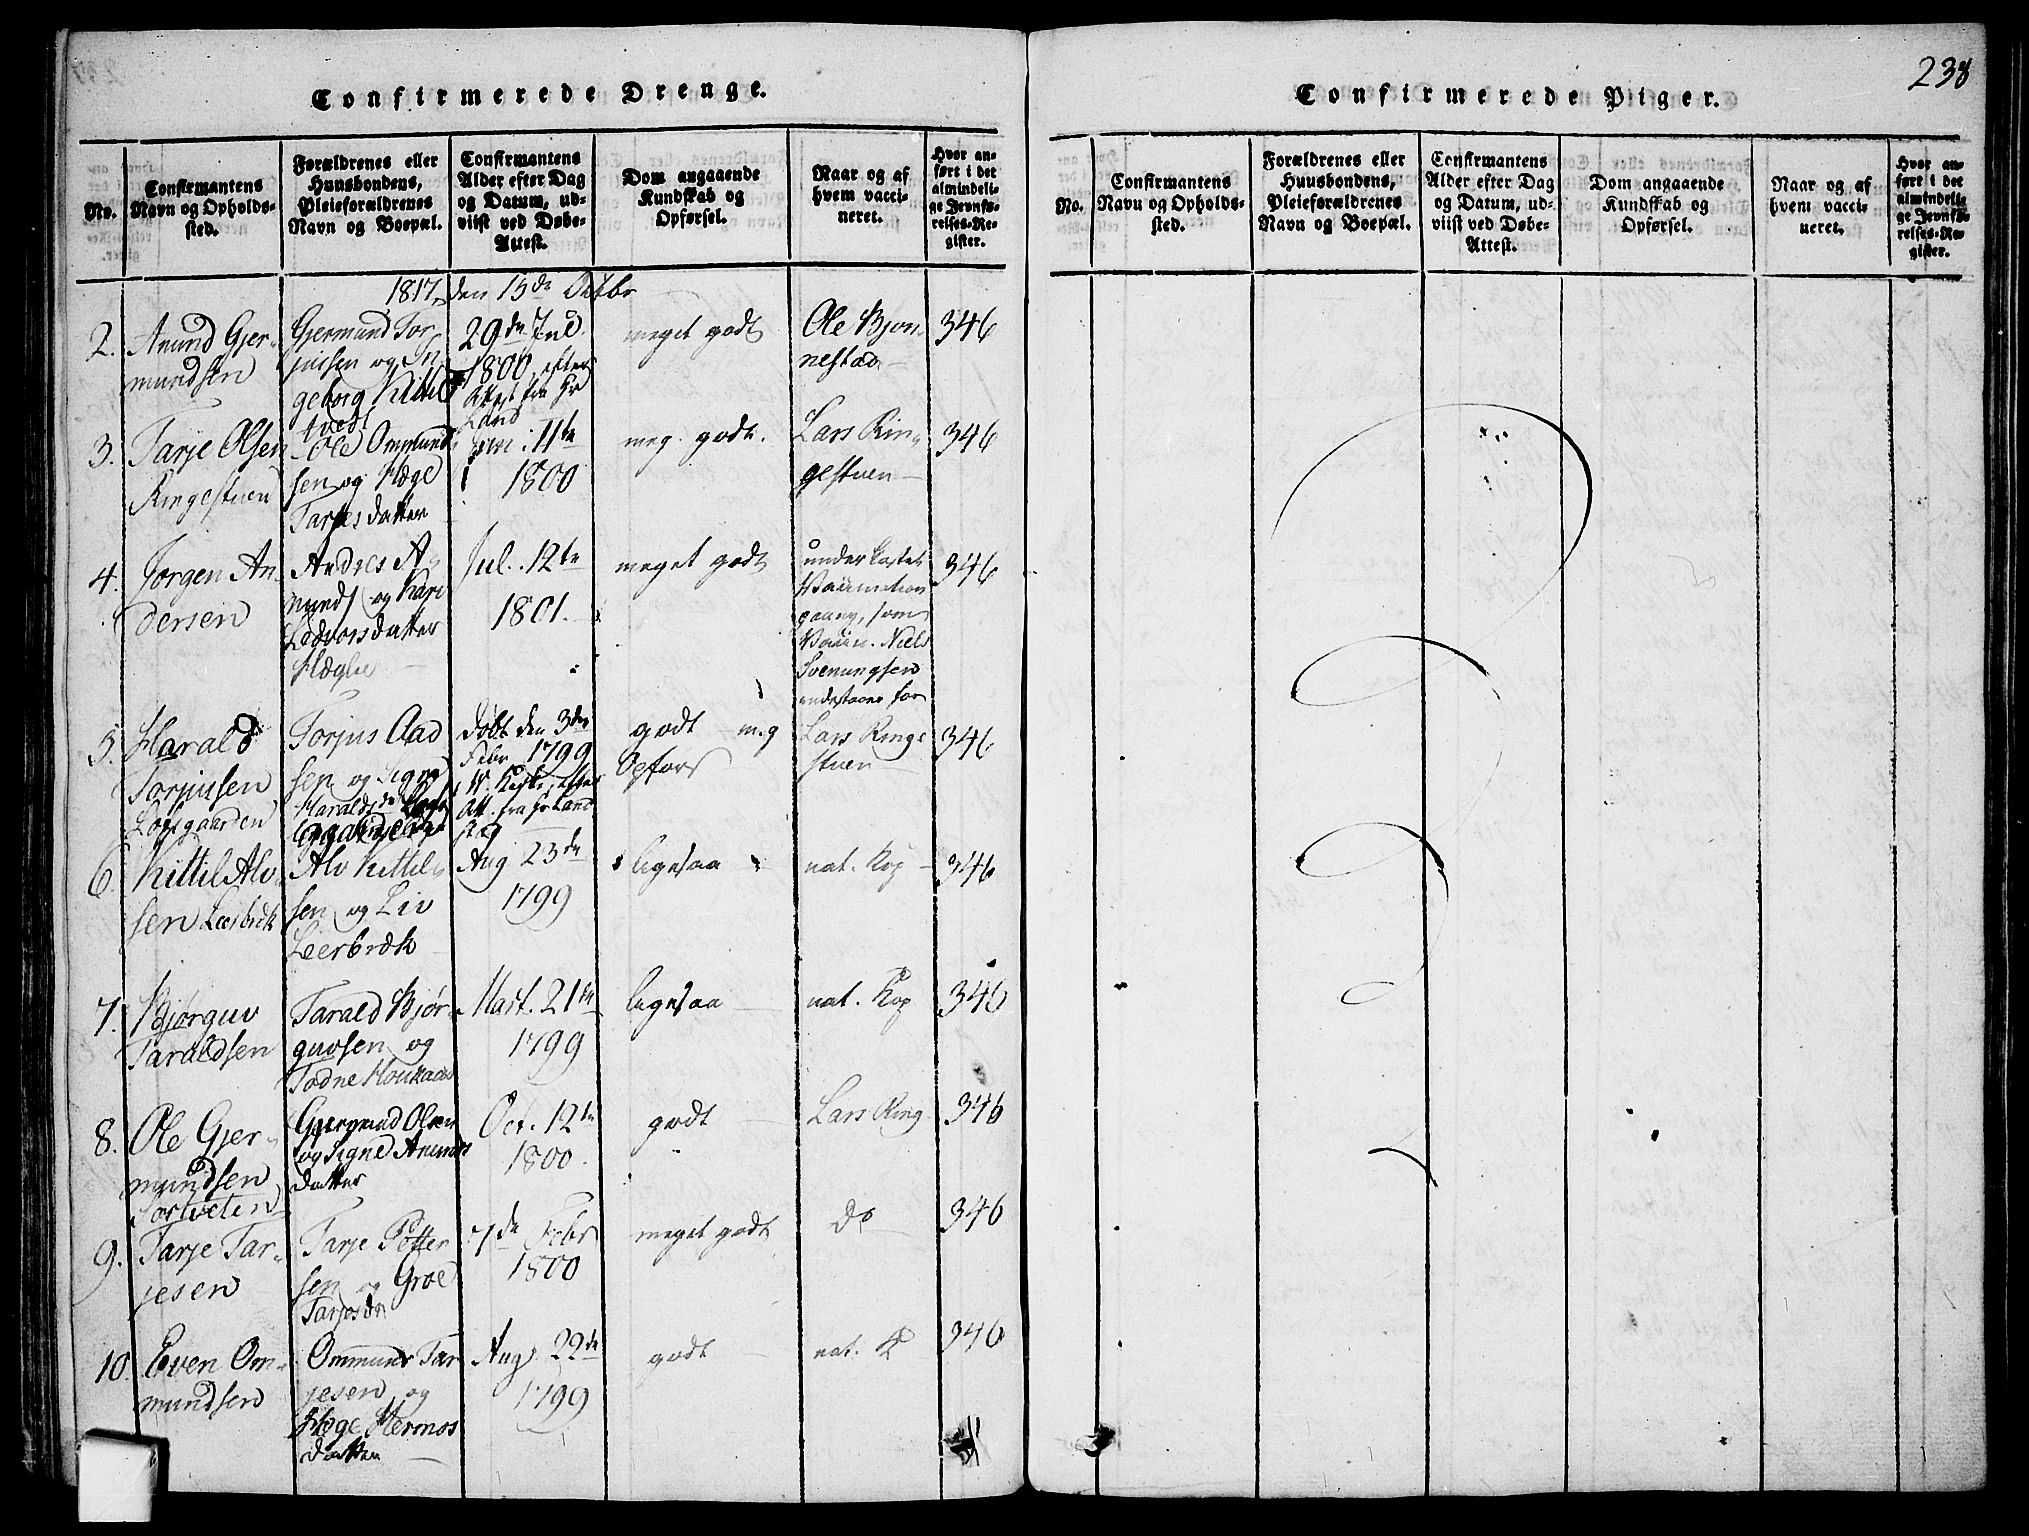 238
Confirmerede Drenge.
No.
Confirmantens
Navn og Opholds-
sted.
Forældrenes eller
Huusbondens,
Pleieforældrenes
Navn og Boepæl.
Confirmantens
Alder efter Dag
og Datum, ud-
viist ved Døbe-
Attest.
Dom angaaende
Kundskab og
Opførsel.
Naar og af
hvem vacci-
neret.
Hvor an-
ført i det
almindeli-
ge Jevnfø-
relses-Re-
gister.
1817, den 15de Octbr
2.
Anund Gjer-
mundsen
Gjermund Tor-
jussen og In-
geborg Kittil
tvedt
29de Jul
1800, efter
Attest fra Hr
Land
meget godt
Ole Bjon-
nestad
346
3.
Tarje Olsen
Ringestuen
Ole Ommund
sen og Hæge
Tarjesdatter
11te
1800
meg. godt.
Lars Rin-
gestuen
346
4.
Jørgen An-
dersen
Andres A-
munds og Kari
Ledvorsdatter
Hæglie
Jul. 12te
1801.
meget godt
underkastet
Vaccination
som
Vaccin. Niels
Svenungsen
for
346
5.
Harald
Torjussen
Loftsgaarden
Torjus Aad
sen og Signe
Haralds
Døbt den 3die
Febr 1799
Att. fra Hr Land
godt meg
Opførs
Lars Ringe
stuen
346
6.
Kittil Alv-
sen Leerbrek
Alv Kittil-
sen og Liv
Leerbrek
Aug 23de
1799
ligesaa
nat. Kop
346
7.
Bjørguv
Taraldsen
Tarald Bjør-
guvsen og
Todne Houkaas
Mart. 21de
1799
ligesaa
nat. Kop
346
8.
Ole Gjer-
mundsen
Sortveten
Gjermund Olsen
og Signe Anunds
datter
Oct. 12te
1800.
godt
Lars Ring
346
9.
Tarje Tar-
jesen
Tarje Petter
sen og Groe
Tarjesdr
7de Febr
1800
meget godt
do
346
10.
Even Om-
mundsen
Ommund Tar
jesen og
Hæge Hermos
datter
Aug. 22de
1799
godt
nat. K
346
Confirmerede Piger.
No.
Confirmantens
Navn og Opholds-
sted.
Forældrenes eller
Huusbondens,
Pleieforældrenes
Navn og Boepæl.
Confirmantens
Alder efter Dag
og Datum, ud-
viist ved Døbe-
Attest.
Dom angaaende
Kundskab og
Opførsel.
Naar og af
hvem vacci-
neret.
Hvor an-
ført i det
almindeli-
ge Jevnfø-
relses-Re-
gister.